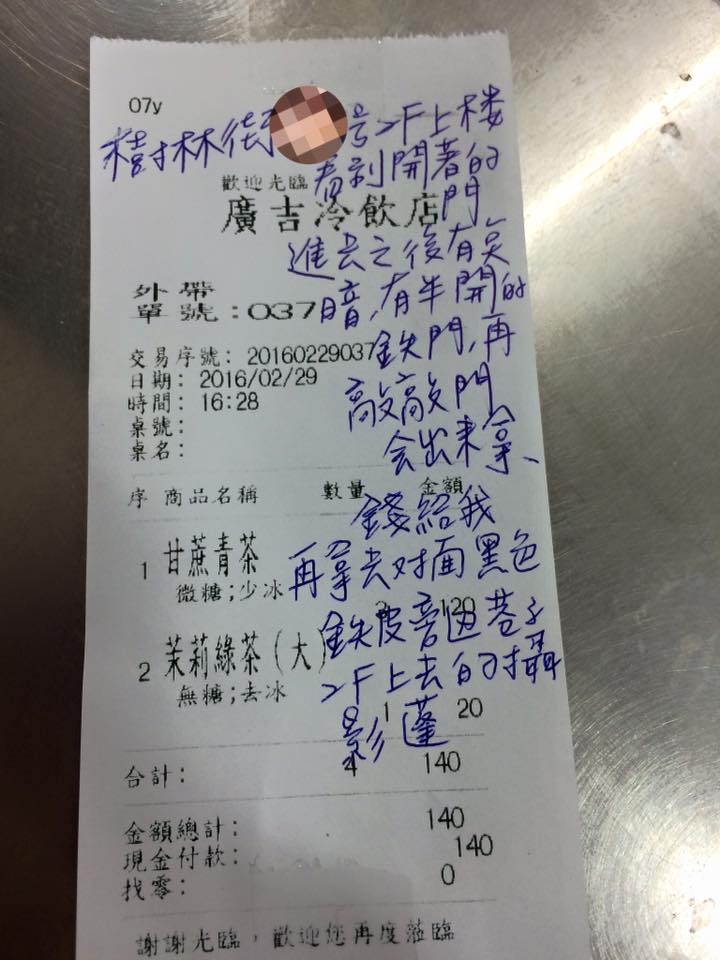 07y
樹林街 号2F上楼
歡迎光臨
看到開著的
廣吉冷飲店
門
進去之後有点
外帶
暗,有半開的
單號:037
鉄門,再
交易序號: 20160229037
日期: 2016/02/29
敲敲門
時間: 16:28
桌號:
会出來拿、
桌名:
序 商品名稱 數量 金額
錢給我
1 甘蔗青茶
再拿去对面黑色
微糖;少冰
3 120
鉄皮旁边巷子
2 茉莉綠茶(大)
2F上去的攝
無糖;去冰
1 20
影蓬
合計: 4 140
金額總計: 140
現金付款: 140
找零: 0
謝謝光臨,歡迎您再度蒞臨